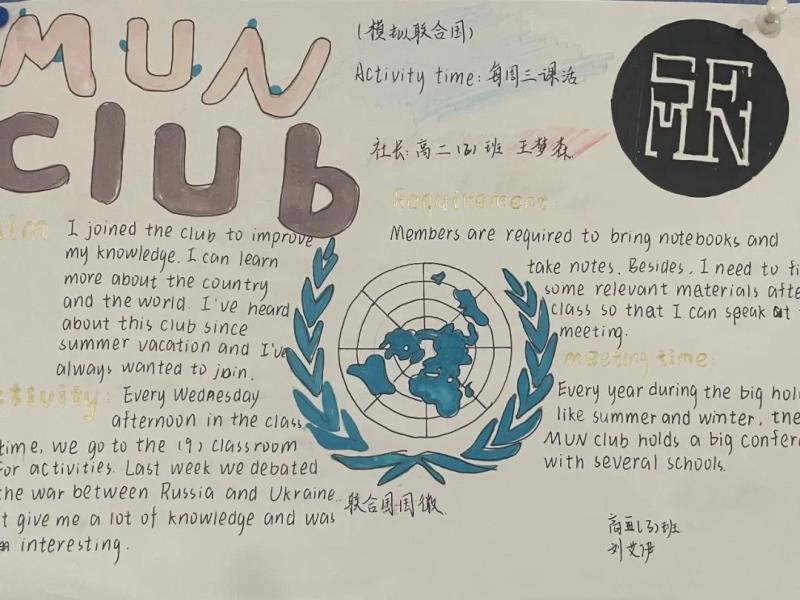 MUN
club
(模拟联合国)
Activity time: 每周三课活
社长: 高二(3)班 王梦森
SF
MUN
Aim
I joined the club to improve
my knowledge. I can learn
more about the country
and the world. I've heard
about this club since
summer vacation and I've
always wanted to join.
Activity:
Every Wednesday
afternoon in the class
time, we go to the (9) classroom
for activities. Last week we debated
the war between Russia and Ukraine
It give me a lot of knowledge and was
interesting.
Requirement:
Members are required to bring notebooks and
take notes. Besides, I need to
some relevant materials after
class so that I can speak at
meeting.
Meeting time:
Every year during the big
like summer and winter, the
MUN club holds a big
with several schools.
联合国国徽
(3)班